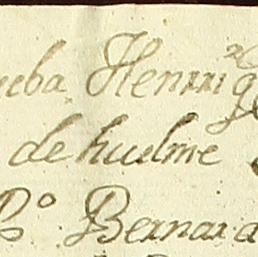 ueba Henrriq
de huelme
Po Bernard